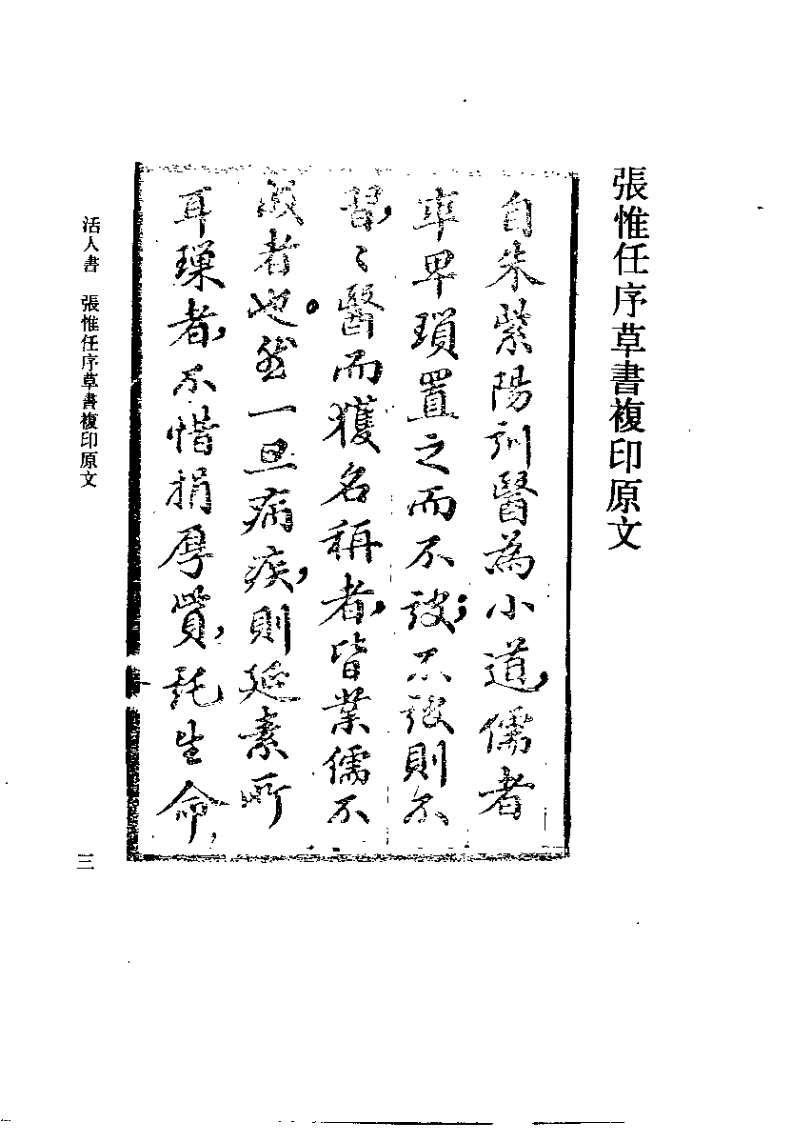 張惟任序草書複印原文
自朱紫陽訓醫為小道,儒者
率卑瑣置之而不;不則不
習,〻醫而獲名稱者,皆業儒不
成者也。然一旦病疾,則延素所
耳璅者,不惜捐厚貲,託生命,
活人書 張惟任序草書複印原文
三